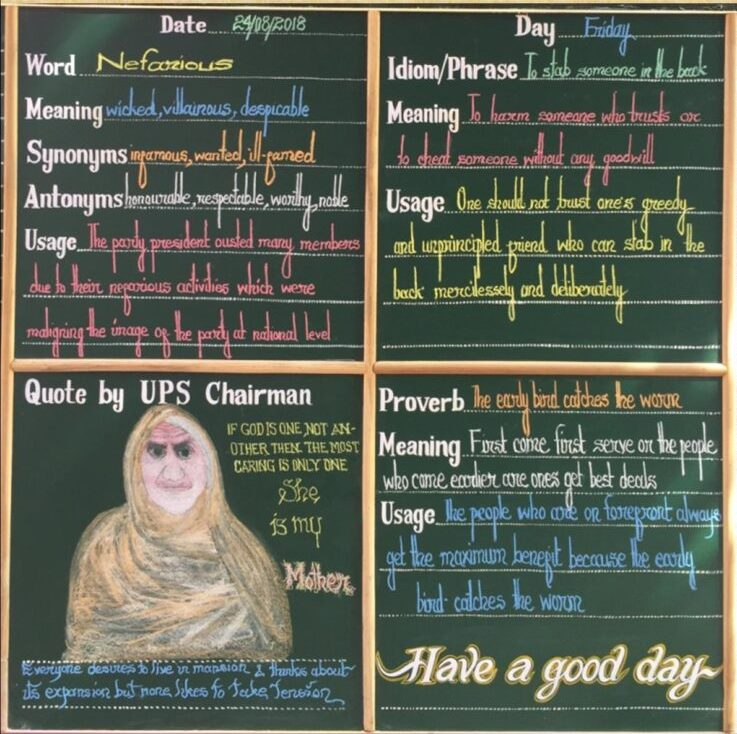 Date 24/08/2018
Word Nefarious
Meaning wicked, villainous, despicable
Synonyms infamous, wanted, ill-famed
Antonyms honourable, respectable, worthy, noble
Usage The party president ousted many members
due to their nefarious activities which were
maligning the image of the party at national level
Day Friday
Idiom/Phrase To stab someone in the back
Meaning To harm someone who trusts or
to cheat someone without any goodwill
Usage One should not trust one's greedy
and unprincipled friend who can stab in the
back mercilessely and deliberately
Quote by UPS Chairman
IF GOD IS ONE NOT AN-
OTHER THEN THE MOST
CARING IS ONLY ONE
She
is my
Mother
Everyone desires to live in mansion & thinks about
its expansion but none likes to Take Tension
Proverb The early bird catches the worm
Meaning First come first serve or the people
who come earlier are ones get best deals
Usage The people who are on forefront always
get the maximum benefit because the early
bird catches the worm
Have a good day